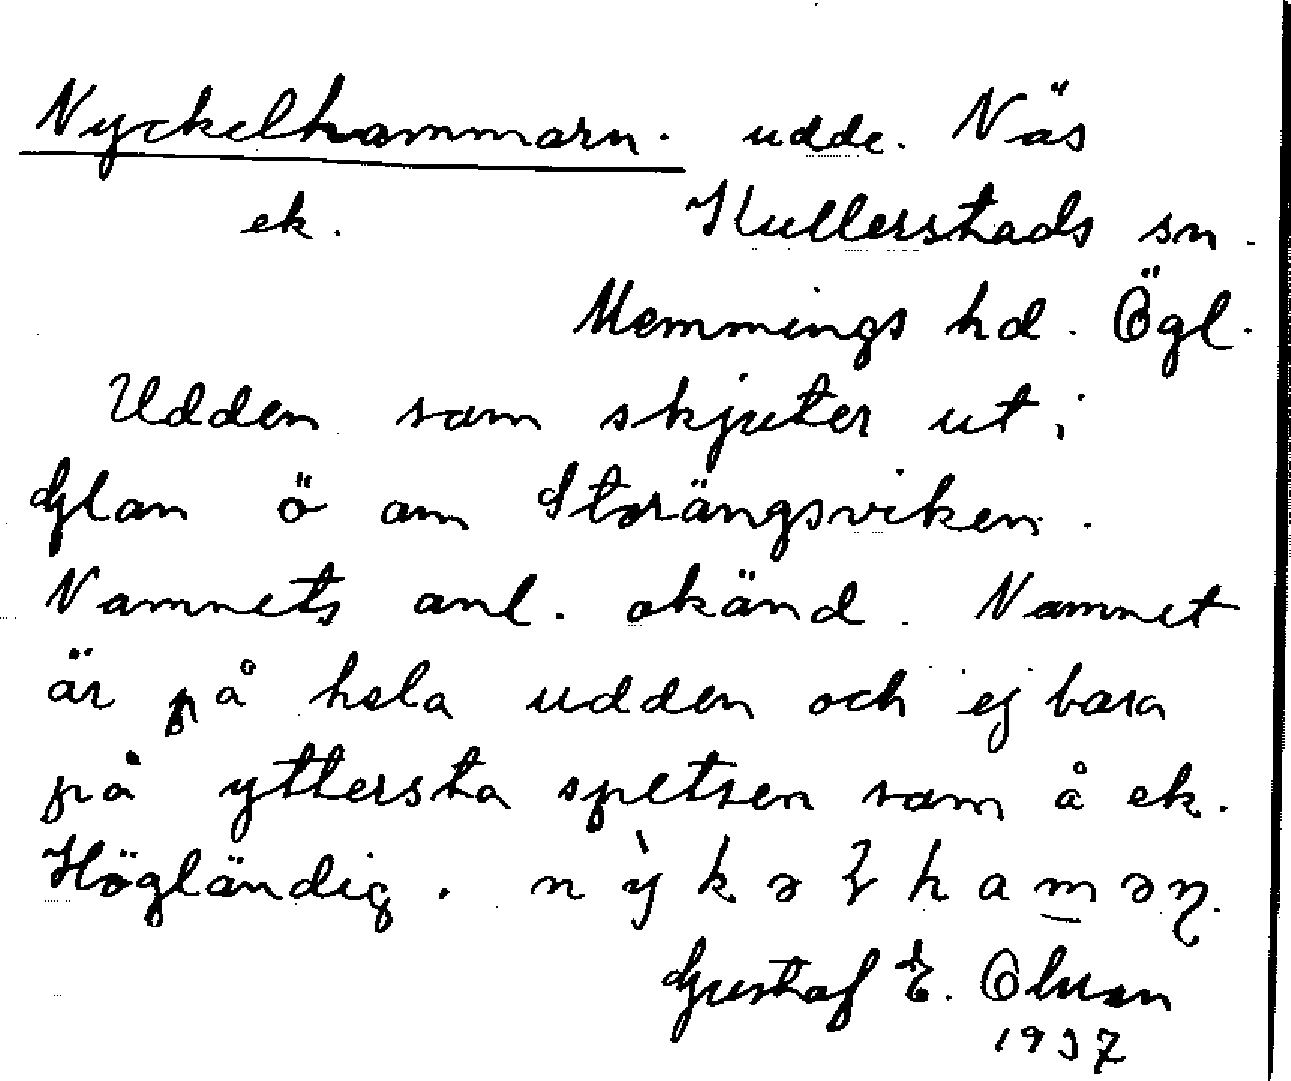 Nyckelhammarn. udde. Näs
ek. Kullerstads sn.
Memmings hd. Ögl.
Udden som skjuter ut i
Glan ö om Storängsviken.
Namnets anl. okänd. Namnet
är på hela udden och ej bara
på yttersta spetsen som å ek.
Högländig. nỳkəɫhamən.
Gustaf E. Olsson
1937